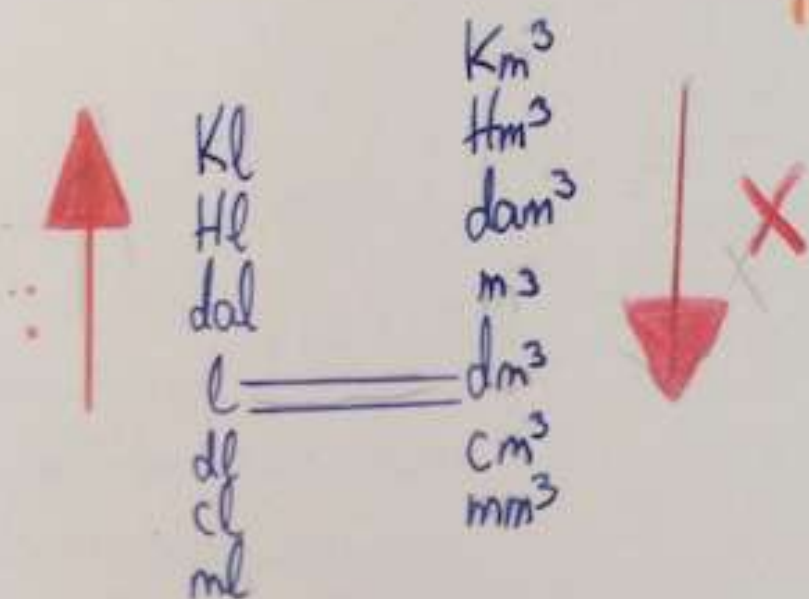 Kl
Hl
dal
l
dl
cl
ml
:
Km³
Hm³
dam³
m3
dm³
cm³
mm³
X